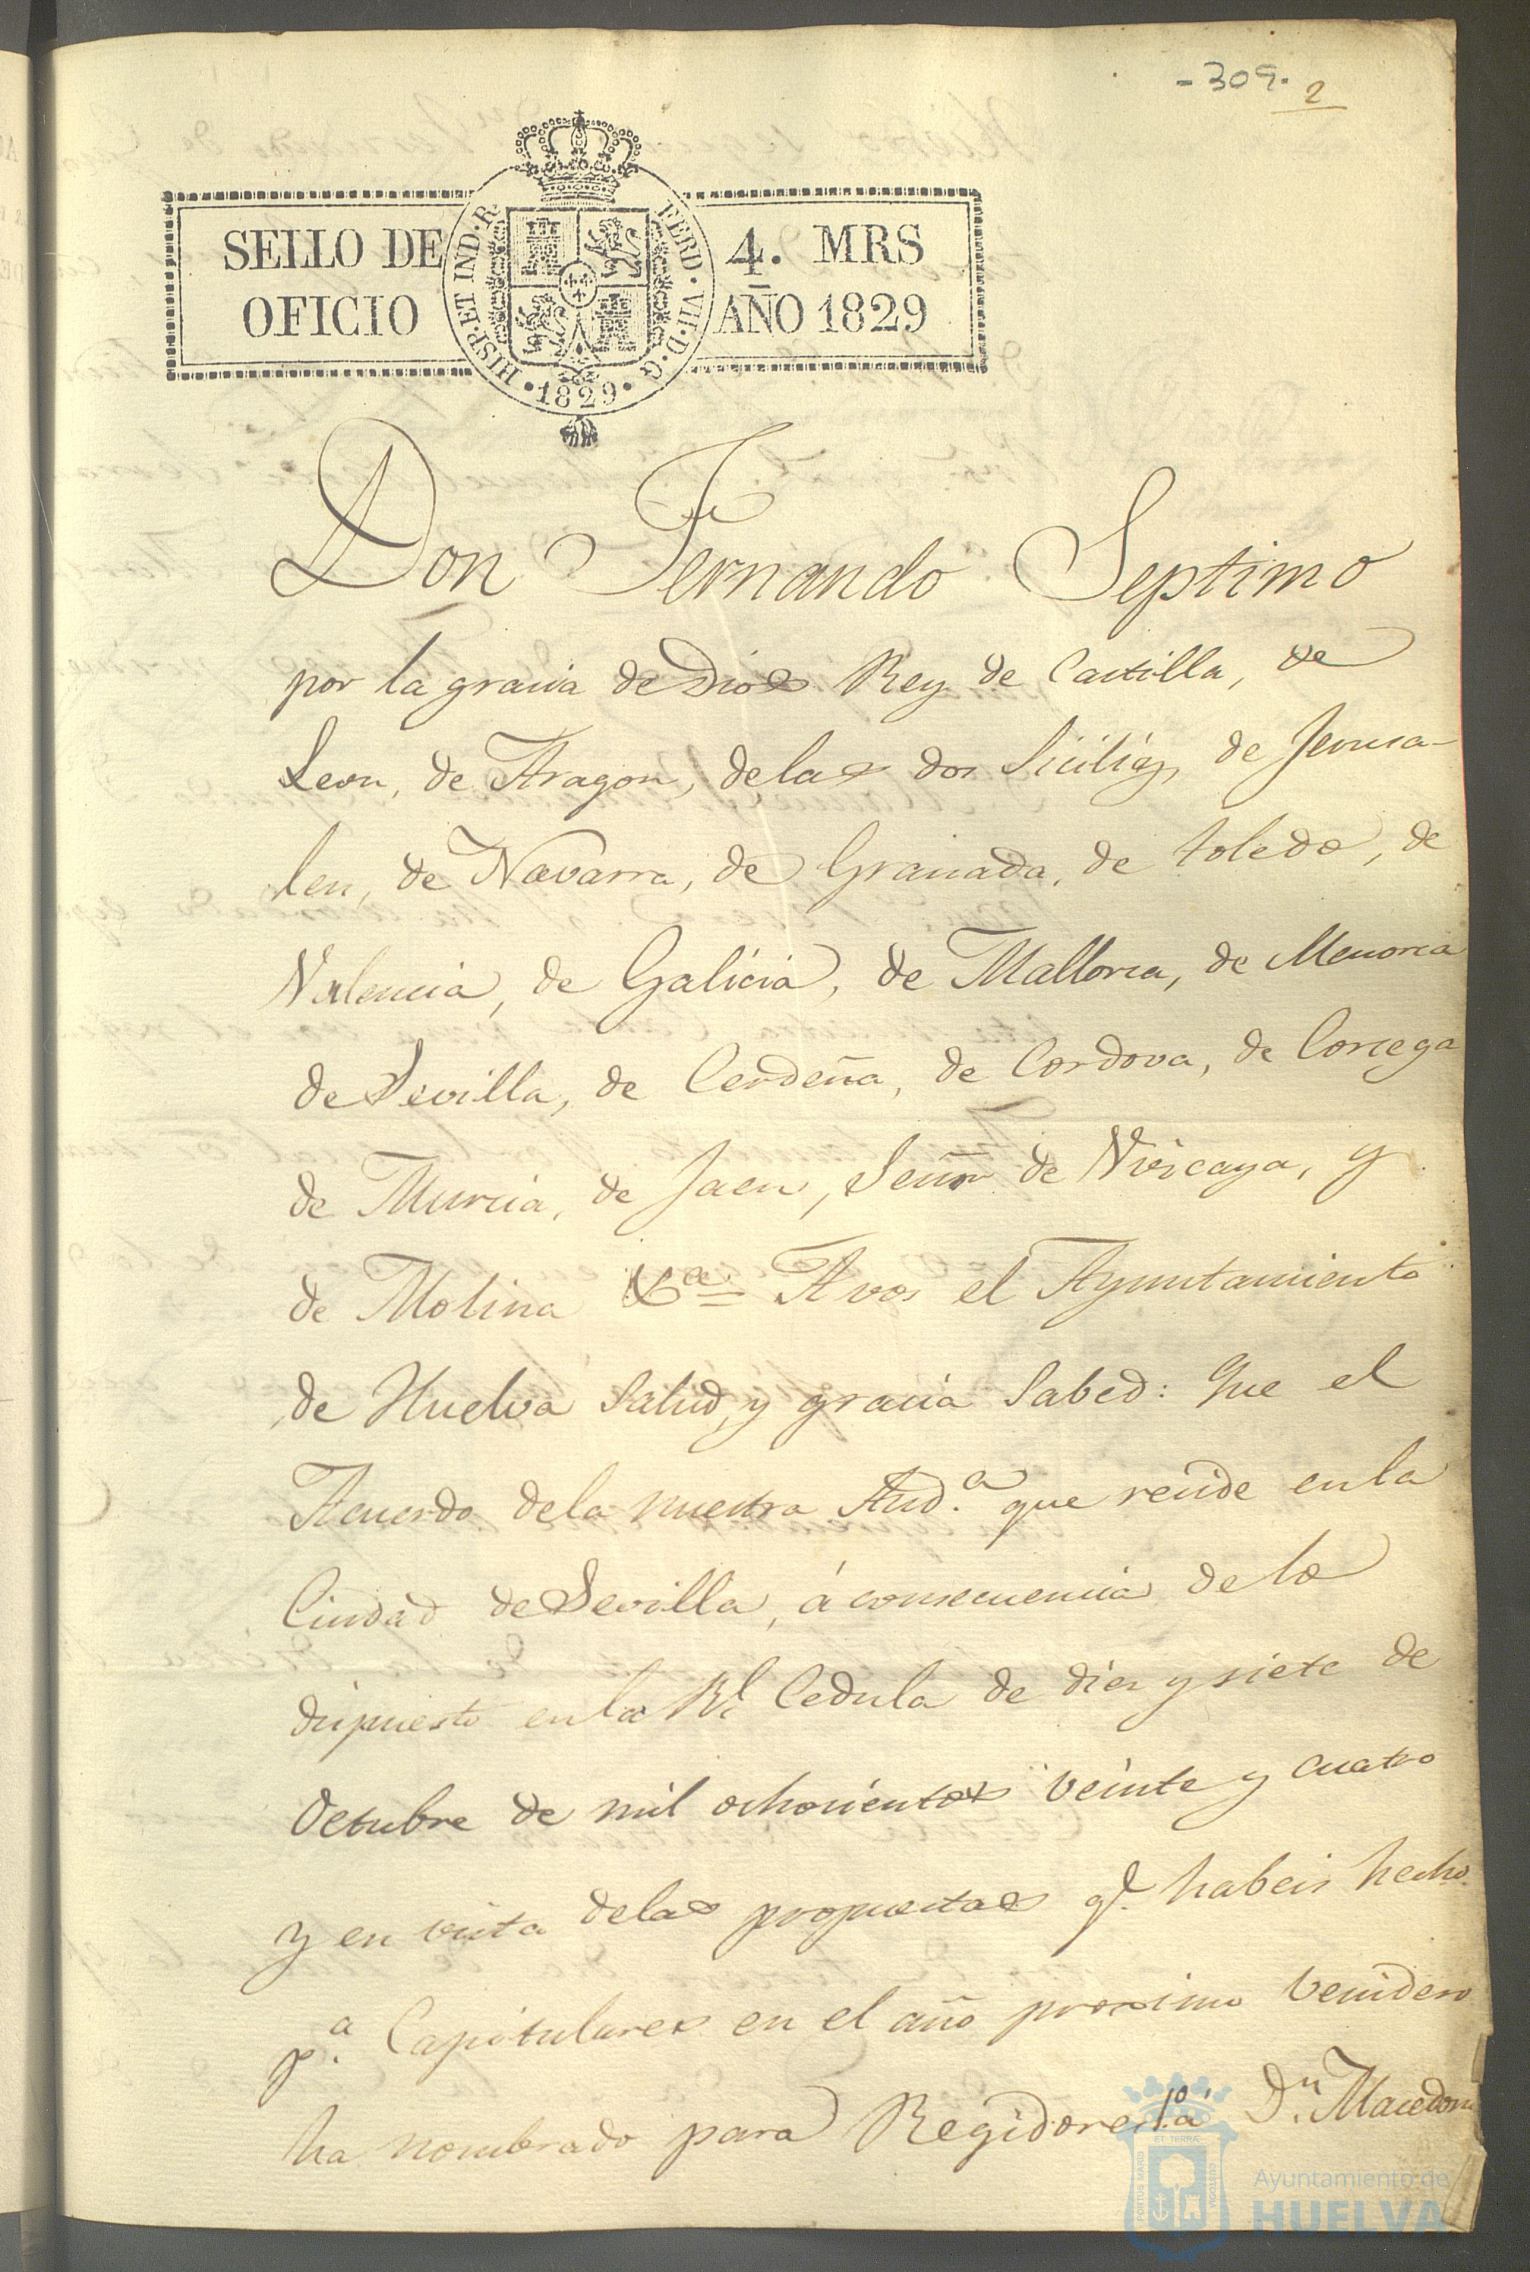 -309.
2
SELLO DE 4. MRS
OFICIO AÑO 1829
HISP. ET IND. R. FERD. VII. D. G. 1829
Don Fernando Septimo
por la gracia de Dios Rey de Castilla, de
Leon, de Aragon, de las dos Sicilias, de Jerusa-
len, de Navarra, de Granada, de toledo, de
Valencia, de Galicia, de Mallorca, de Menorca
de Sevilla, de Cerdeña, de Cordova, de Corcega
de Murcia, de Jaen, Señor de Viscaya, y
de Molina &a = A vos el Ayuntamiento
de Huelva Salud, y gracia Sabed: Que el
Acuerdo de la nuestra Aud.a que reside en la
Ciudad de Sevilla, á consecuencia de lo
dispuesto en la Rl Cedula de dies y siete de
Octubre de mil ochocientos veinte y cuatro
y en vista de las propuestas q.e habeis hecho
p.a Capitulares en el año proximo venidero
ha nombrado para Regidores 1.o á D.n Macedoni
PORTUS MARIS ET TERRÆ CUSTODIA
Ayuntamiento de
HUELVA